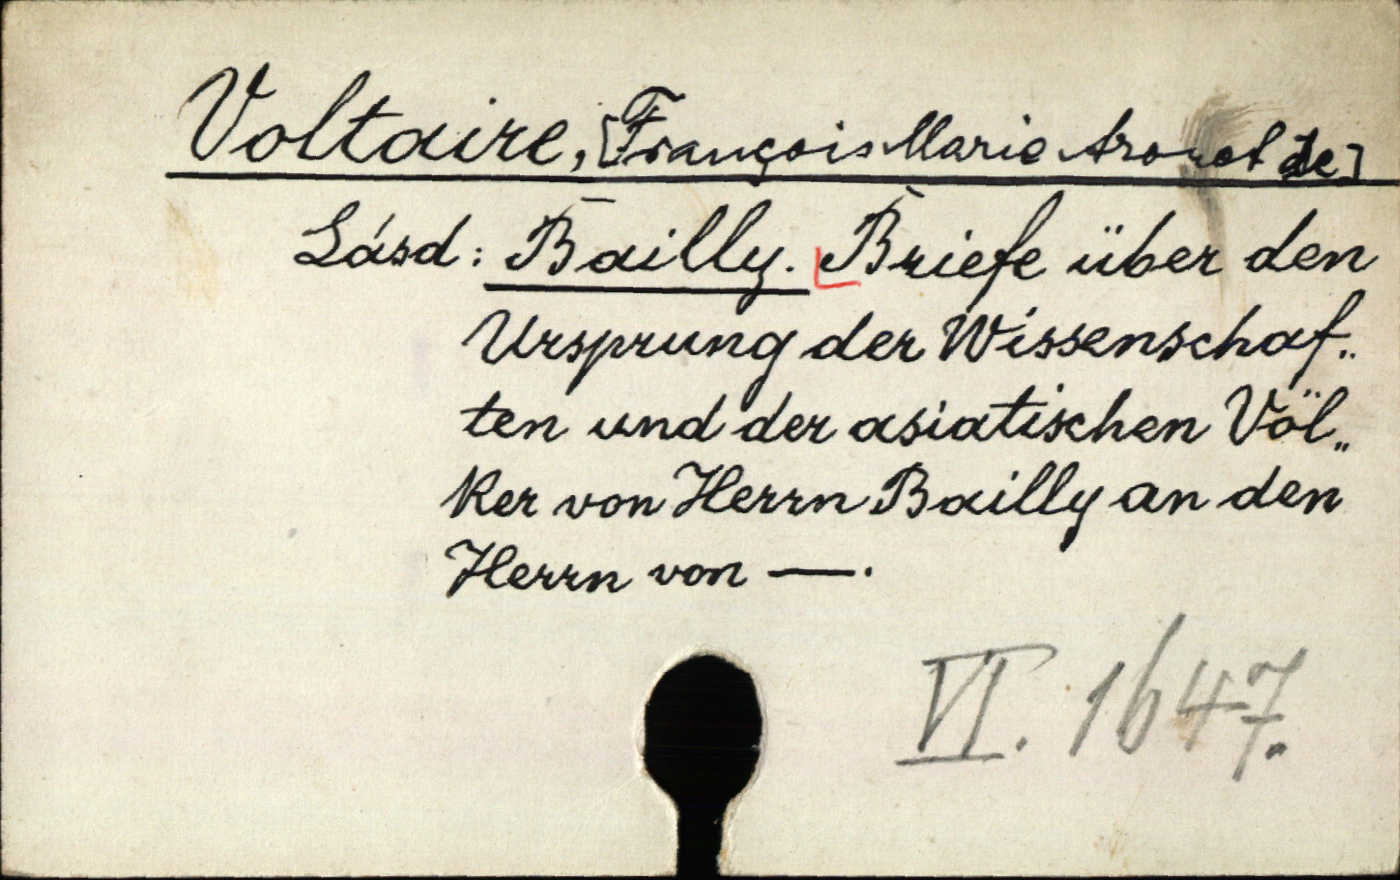 Voltaire, [François Marie Arouet de]
Lásd: Bailly. Briefe über den
Ursprung der Wissenschaf„
ten und der asiatischen Völ„
ker von Herrn Bailly an den
Herrn von —.
VI. 1647.